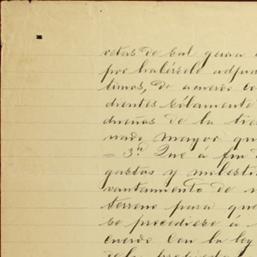 cetas de Cal quina
por habérselo adju
timos, de acuerdo co
dientes Eilamente
dueños de la tie
nado, mayor qu
= 3ª. Que á fin d
gastos y molesti
vantamiento de
terreno para que
se procediese á
cuerdo con la ley